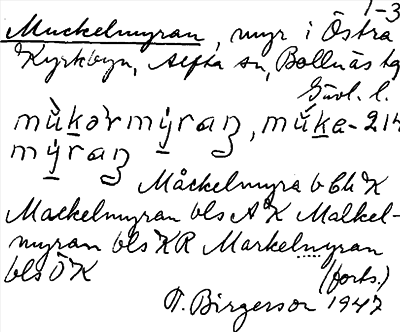 1-3
Muckelmyran, myr i Östra
Kyrkbyn, Alfta sn, Bollnäs tg
Gävl. l.
mùkərmýraꞑ, múke- 214
mỳraꞑ
Måckelmyra bbh K
Mackelmyran bls A K Malkel-
myran bls KR Markelmyran
bls Ö K (forts.)
T. Birgerson 1947